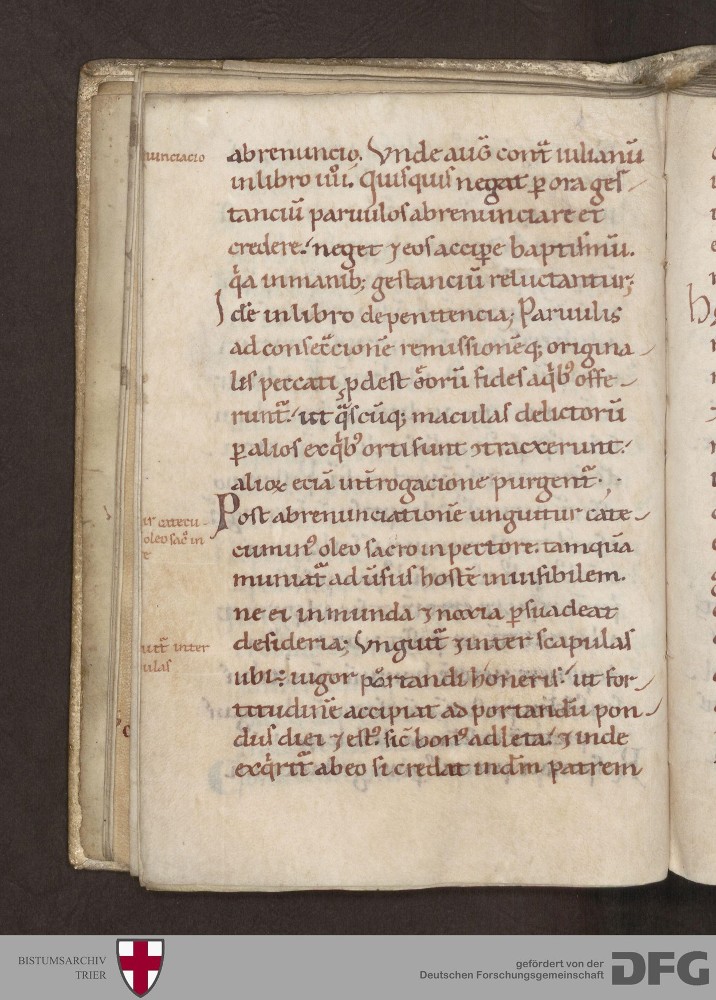 nunciacio
abrenuncio. Unde auḡ cont̄ iulianū
in libro iııı. Quisquis negat ꝑ ora ges-
tanciū paruulos abrenunciare et
credere. neget ⁊ eos accipe baptismū.
qͥa in manib; gestanciū reluctantur;
Idē in libro de penitencia; Paruulis
ad consec̄cionē remissionēq; origina-
lis peccati ꝓdest eoꝝ fides a qͥbꝰ offe-
runt̄. ut qͣscūq; maculas delictorū
ꝑ alios ex qͥbꝰ orti sunt ↄtracxerunt.
alioꝝ eciā int̄rogacione purgent̄.
Post abrenunciationē unguitur cate-
cuminꝰ oleo sacro in pectore. tamquā
muniat̄ ad ūsus hostē inuisibilem.
ne ei inmunda ⁊ noxia ꝑsuadeat
desideria; Unguit̄ ⁊ inter scapulas
ubi ÷ uigor portandi honeris. ut for-
titudinē accipiat ad portandū pon-
dus diei ⁊ estꝰ. sic̄ bonꝰ adleta. ⁊ inde
exqͥrit̄ ab eo si credat in dm̄ patrem
ur catecu-
oleo sac̄ in
e
uit̄ inter
ulas
BISTUMSARCHIV
TRIER
gefördert von der
Deutschen Forschungsgemeinschaft
DFG